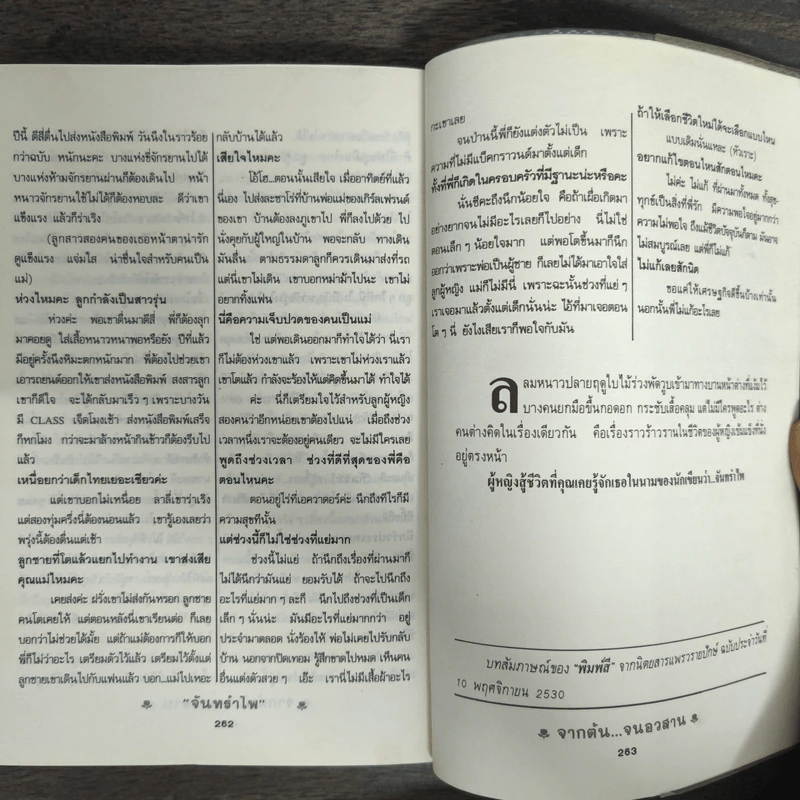 ปีนี้ ตีสี่ตื่นไปส่งหนังสือพิมพ์ วันนึงในราวร้อย
กว่าฉบับ หนักนะคะ บางแห่งขี่จักรยานไปได้
บางแห่งห้ามจักรยานผ่านก็ต้องเดินไป หน้า
หนาวจักรยานใช้ไม่ได้ก็ต้องหอบละ ดีว่าเขา
แข็งแรง แล้วก็ร่าเริง
(ลูกสาวสองคนของเธอหน้าตาน่ารัก
ดูแข็งแรง แจ่มใส น่าชื่นใจสำหรับคนเป็น
แม่)
ห่วงไหมคะ ลูกกำลังเป็นสาวรุ่น
ห่วงค่ะ พอเขาตื่นมาตีสี่ พี่ก็ต้องลุก
มาคอยดู ใส่เสื้อหนาวหนาพอหรือยัง ปีที่แล้ว
มีอยู่ครั้งนึงหิมะตกหนักมาก พี่ต้องไปช่วยเขา
เอารถยนต์ออกให้เขาส่งหนังสือพิมพ์ สงสารลูก
เขาก็ดีใจ จะได้กลับมาเร็วๆ เพราะบางวัน
มี CLASS เจ็ดโมงเช้า ส่งหนังสือพิมพ์เสร็จ
ก็หกโมง กว่าจะมาล้างหน้ากินข้าวก็ต้องรีบไป
แล้ว
เหนื่อยกว่าเด็กไทยเยอะเชียวค่ะ
แต่เขาบอกไม่เหนื่อย ลาลี่เขาร่าเริง
แต่สองทุ่มครึ่งนี่ต้องนอนแล้ว เขารู้เองเลยว่า
พรุ่งนี้ต้องตื่นแต่เช้า
ลูกชายที่โตแล้วแยกไปทำงาน เขาส่งเสีย
คุณแม่ไหมคะ
เคยส่งค่ะ ฝรั่งเขาไม่ส่งกันหรอก ลูกชาย
คนโตเคยให้ แต่ตอนหลังนี่เขาเรียนต่อ ก็เลย
บอกว่าไม่ช่วยได้มั้ย แต่ถ้าแม่ต้องการก็ให้บอก
พี่ก็ไม่ว่าอะไร เตรียมตัวไว้แล้ว เตรียมไว้ตั้งแต่
ลูกชายเขาเดินไปกับแฟนแล้ว บอก...แม่ไปเหอะ
กลับบ้านได้แล้ว
เสียใจไหมคะ
โอ้โฮ...ตอนนั้นเสียใจ เมื่ออาทิตย์ที่แล้ว
นี่เอง ไปส่งละชาโร่ที่บ้านพ่อแม่ของเกิร์ลเฟรนด์
ของเขา บ้านต้องลงภูเขาไป พี่ก็ลงไปด้วย ไป
นั่งคุยกับผู้ใหญ่ในบ้าน พอจะกลับ ทางเดิน
มันลื่น ตามธรรมดาลูกก็ควรเดินมาส่งที่รถ
แต่นี่เขาไม่เดิน เขาบอกหม่าม้าไปนะ เขาไม่
อยากทิ้งแฟน
นี่คือความเจ็บปวดของคนเป็นแม่
ใช่ แต่พอเดินออกมาก็ทำใจได้ว่า นี่เรา
ก็ไม่ต้องห่วงเขาแล้ว เพราะเขาไม่ห่วงเราแล้ว
เขาโตแล้ว กำลังจะร้องไห้แต่คิดขึ้นมาได้ ทำใจได้
ค่ะ นี่ก็เตรียมใจไว้สำหรับลูกผู้หญิง
สองคนว่าอีกหน่อยเขาต้องไปแน่ เมื่อถึงช่วง
เวลาหนึ่งเราจะต้องอยู่คนเดียว จะไม่มีใครเลย
พูดถึงช่วงเวลา ช่วงที่ดีที่สุดของพี่คือ
ตอนไหนคะ
ตอนอยู่ไร่ที่เอควาดอร์ค่ะ นึกถึงทีไรก็มี
ความสุขทีนั้น
แต่ช่วงนี้ก็ไม่ใช่ช่วงที่แย่มาก
ช่วงนี้ไม่แย่ ถ้านึกถึงเรื่องที่ผ่านมาก็
ไม่ได้นึกว่ามันแย่ ยอมรับได้ ถ้าจะไปนึกถึง
อะไรที่แย่มากๆ ละก็ นึกไปถึงช่วงที่เป็นเด็ก
เล็กๆ นั่นน่ะ มันมีอะไรที่แย่มากกว่า อยู่
ประจำมาตลอด นั่งร้องไห้ พ่อไม่เคยไปรับกลับ
บ้าน นอกจากปิดเทอม รู้สึกขาดไปหมด เห็นคน
อื่นแต่งตัวสวยๆ เอ๊ะ เรานี่ไม่มีเสื้อผ้าอะไร
"จันทรำไพ"
262
กะเขาเลย
จนป่านนี้พี่ก็ยังแต่งตัวไม่เป็น เพราะ
ความที่ไม่มีแบ็คกราวนด์มาตั้งแต่เด็ก
ทั้งที่พี่ก็เกิดในครอบครัวที่มีฐานะน่ะหรือคะ
นั่นซีคะถึงนึกน้อยใจ คือถ้าเผื่อเกิดมา
อย่างยากจนไม่มีอะไรเลยก็ไปอย่าง นี่ไม่ใช่
ตอนเล็กๆ น้อยใจมาก แต่พอโตขึ้นมาก็นึก
ออกว่าเพราะพ่อเป็นผู้ชาย ก็เลยไม่ได้มาเอาใจใส่
ลูกผู้หญิง แม่ก็ไม่มีนี่คะ เพราะฉะนั้นช่วงที่แย่ๆ
เราเจอมาแล้วตั้งแต่เด็กนั่นน่ะ ไอ้ที่มาเจอตอน
โตๆ นี่ ยังไงเสียเราก็พอใจกับมัน
ถ้าให้เลือกชีวิตใหม่ได้จะเลือกแบบไหน
แบบเดิมนั่นแหละ (หัวเราะ)
อยากแก้ไขตอนไหนสักตอนไหมคะ
ไม่ค่ะ ไม่แก้ ที่ผ่านมาทั้งหมด ทั้งสุข-
ทุกข์เป็นสิ่งที่พี่รัก มีความพอใจอยู่มากกว่า
ความไม่พอใจ ถึงแม้ชีวิตปัจจุบันก็ตาม มันอาจ
ไม่สมบูรณ์เลย แต่พี่ก็ไม่แก้
ไม่แก้เลยสักนิด
ขอแค่ให้เศรษฐกิจดีขึ้นบ้างเท่านั้น
นอกนั้นพี่ไม่แก้อะไรเลย
ลมหนาวปลายฤดูใบไม้ร่วงพัดวูบเข้ามาทางบานหน้าต่างที่แง้มไว้
บางคนยกมือขึ้นกอดอก กระชับเสื้อคลุม แต่ไม่มีใครพูดอะไร ต่าง
คนต่างคิดในเรื่องเดียวกัน คือเรื่องราวร้าวรานในชีวิตของผู้หญิงเข้มแข็งที่นั่ง
อยู่ตรงหน้า
ผู้หญิงสู้ชีวิตที่คุณเคยรู้จักเธอในนามของนักเขียนว่า...จันทรำไพ
บทสัมภาษณ์ของ "พิมพ์สี" จากนิตยสารแพรวรายปักษ์ ฉบับประจำวันที่
10 พฤศจิกายน 2530
จากต้น...จนอวสาน
263